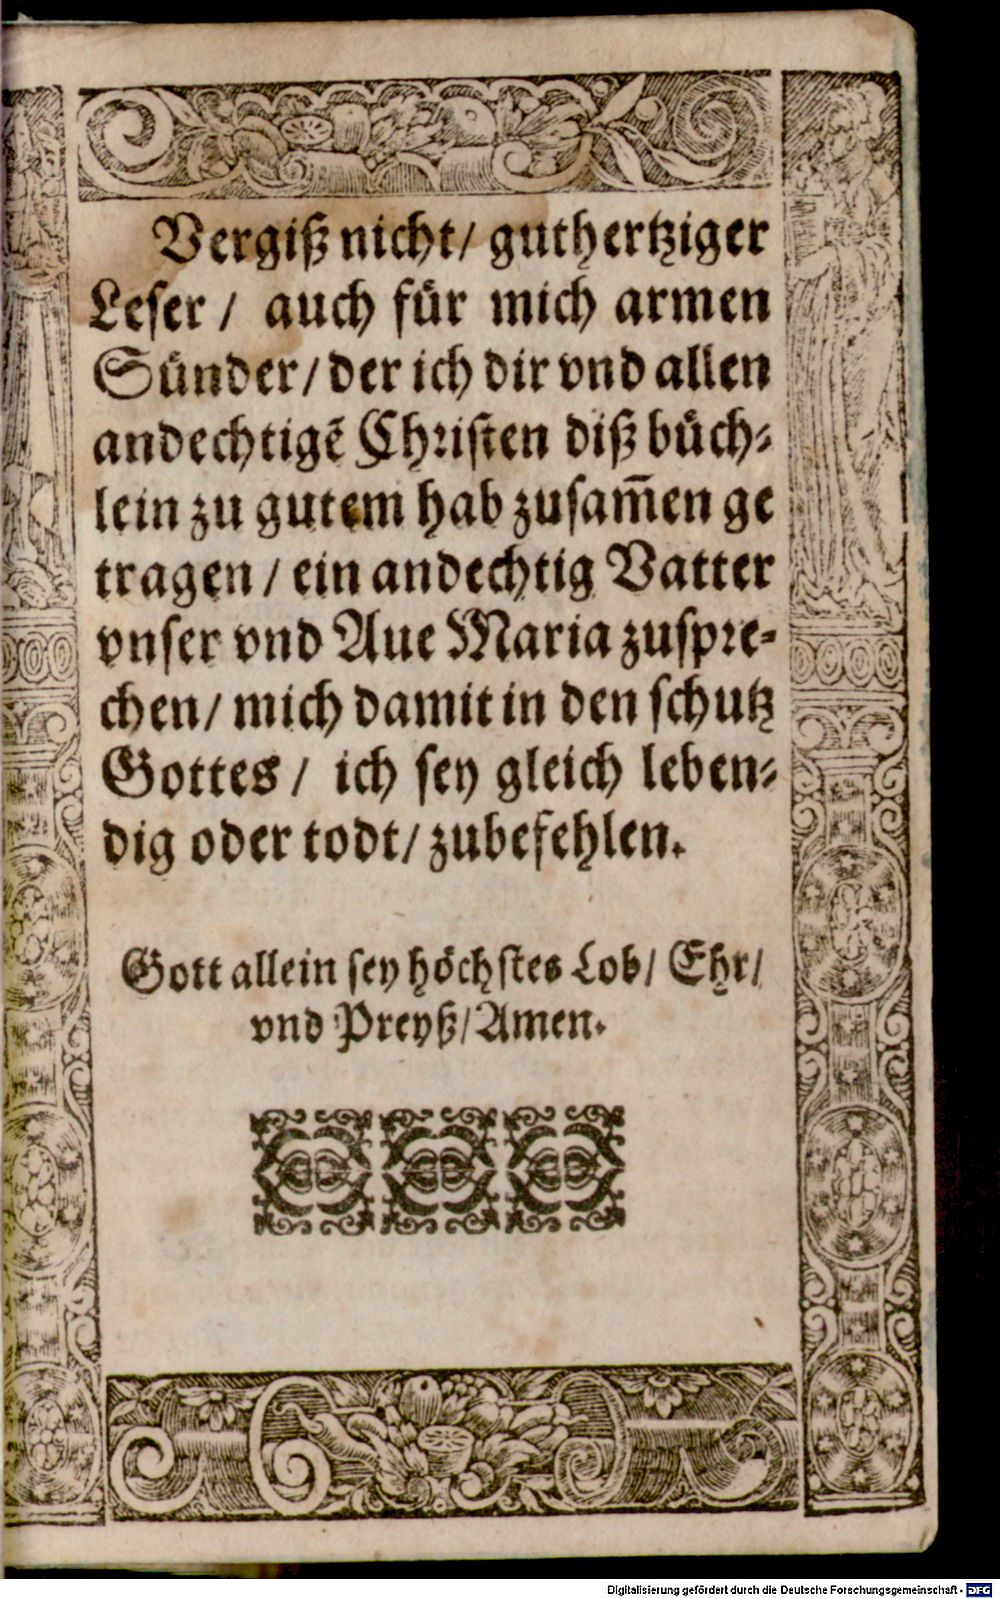 Vergiß nicht/ guthertziger
Leser/ auch für mich armen
Sünder/ der ich dir vnd allen
andechtigẽ Christen diß büch-
lein zu gutem hab zusam̃en ge
tragen/ ein andechtig Vatter
vnser vnd Aue Maria zuspre-
chen/ mich damit in den schutz
Gottes/ ich sey gleich leben-
dig oder todt/ zubefehlen.
Gott allein sey höchstes Lob/ Ehr/
vnd Preyß/ Amen.
Digitalisierung gefördert durch die Deutsche Forschungsgemeinschaft - DFG